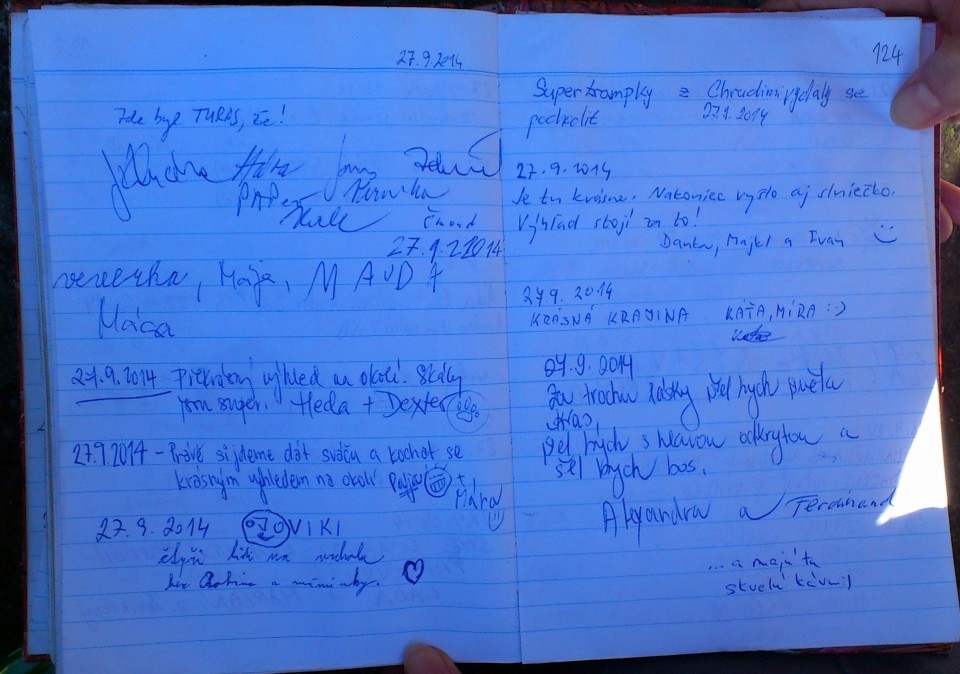 27.9.2014
Zde byl TURAS, že!
27.9.2014
veverka, Mája, MAUDA
27.9.2014 Překrásný výhled na okolí. Skály
jsou super. Heda + Dexter
27.9.2014 - Právě si jdeme dát sváču a kochat se
krásným výhledem na okolí Pája +
Mára
27.9.2014 VIKI
čtyři lidi na vrcholu
bez a miminky.
124
Supertrampky z Chrudimi vydaly se
podkolit 27.9.2014
27.9.2014
Je tu krásne. Nakoniec vyšlo aj slniečko.
Výhľad stojí za to!
Danka, Majkl a Ivan
27.9.2014
KRÁSNÁ KRAJINA KÁŤA, MÍRA :-)
27.9.2014
Za trochu lásky šel bych světa
kraj,
šel bych s hlavou odkrytou a
šel bych bos.
Alexandra a Ferdinand
...a majú tu
skvelú kávu:)